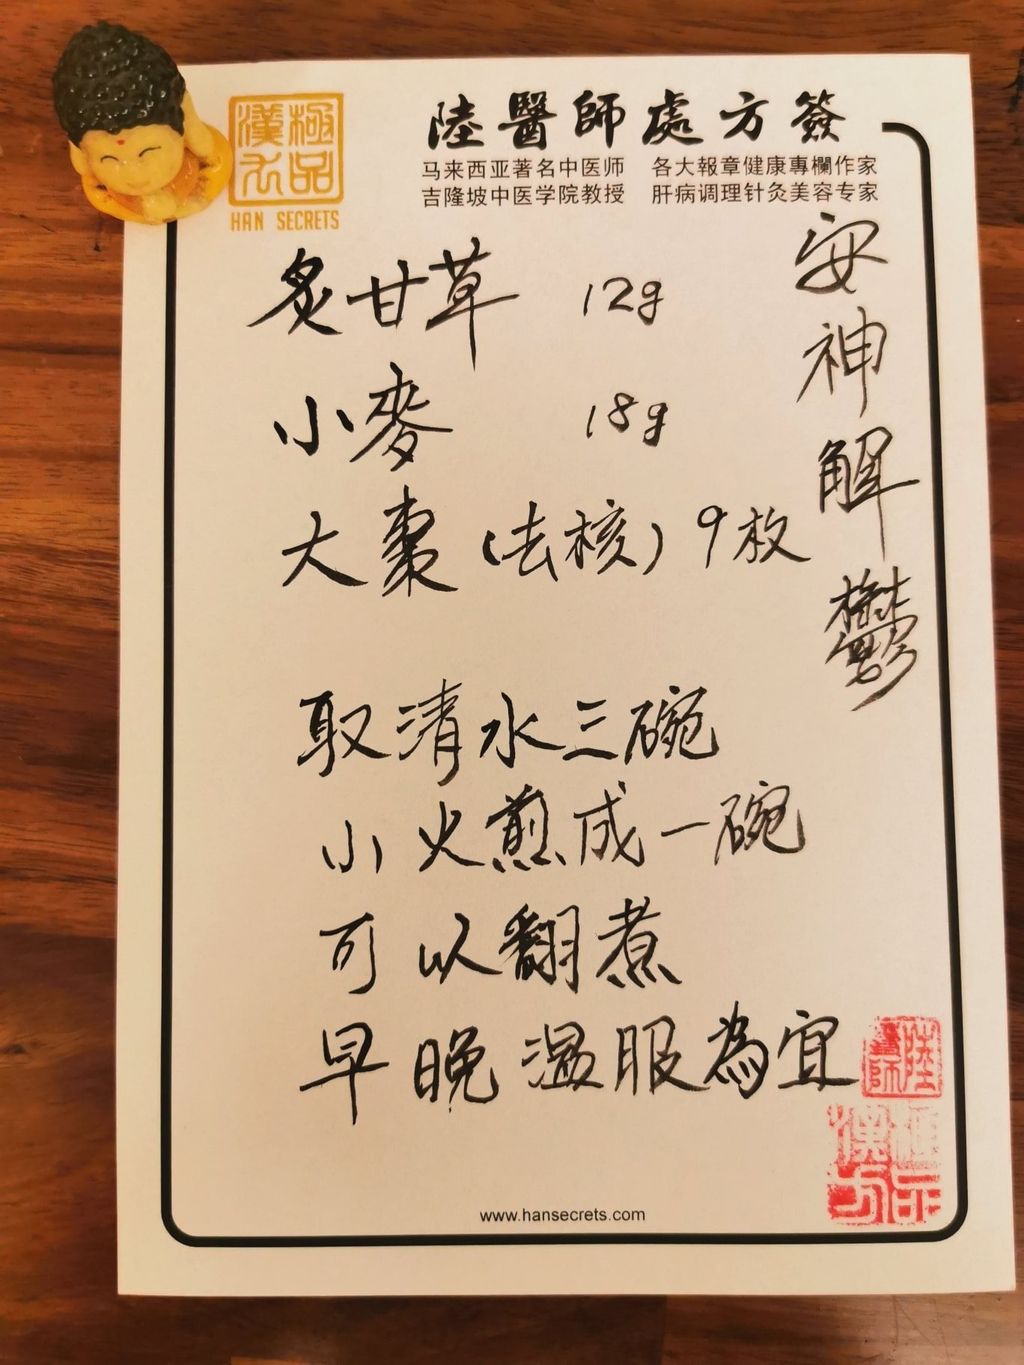 漢方極品
HAN SECRETS
陸醫師處方簽
马来西亚著名中医师 各大報章健康專欄作家
吉隆坡中医学院教授 肝病调理针灸美容专家
安神解鬱
炙甘草 12g
小麥 18g
大棗(去核) 9枚
取清水三碗
小火煎成一碗
可以翻煮
早晚溫服為宜
陸醫師
極品漢方
www.hansecrets.com